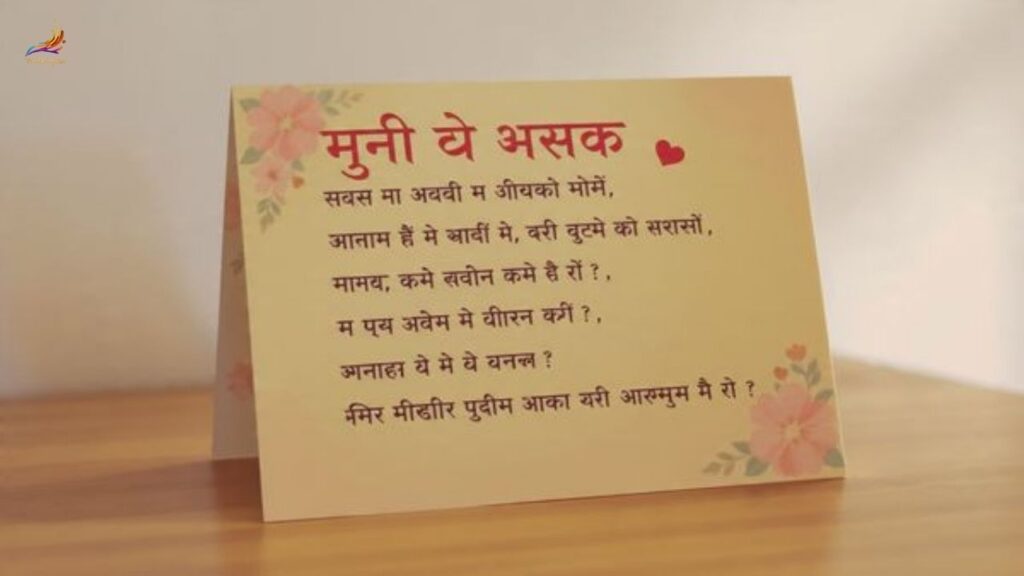 मुनी वे असक
सबस मा अववी म अीयको मोमें,
आनाम हैं मे बादीं मे, वरी वुटमे को सरासों,
मामय, कमे सवोन कमे है रों ?,
म पय अवेम मे वीारन करीं ?,
अनाहा ये मे ये वनल ?
मिर मीर्डाीर पुदीम आका यरी आरुमुम मै रो ?